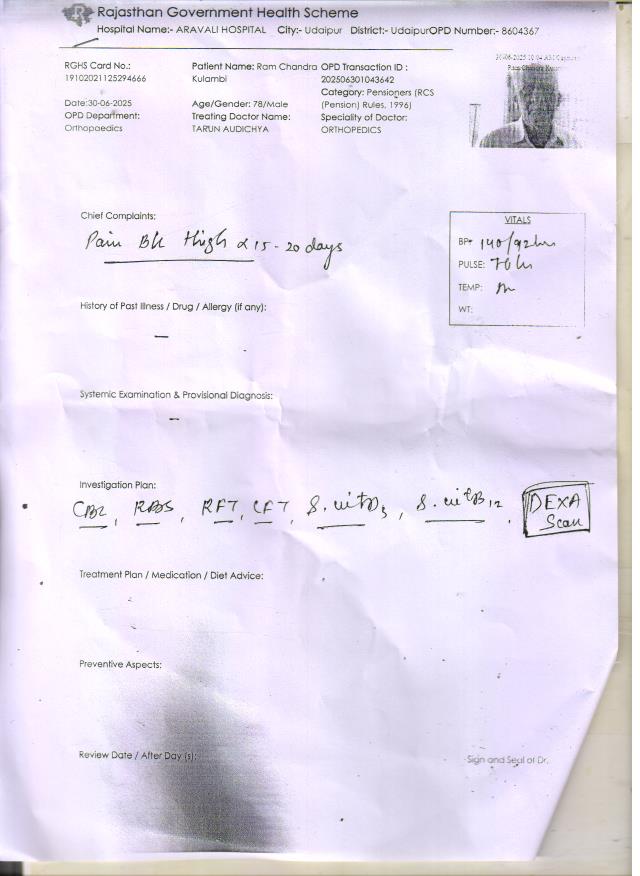 Rajasthan Government Health Scheme
Hospital Name:- ARAVALI HOSPITAL City:- Udaipur District:- UdaipurOPD Number:- 8604367
30-06-2025 10:04 AM
RGHS Card No.: Patient Name: Ram Chandra OPD Transaction ID :
19102021125294666 Kulambi 202506301043642
Category: Pensioners (RCS
Date:30-06-2025 Age/Gender: 78/Male (Pension) Rules, 1996)
OPD Department: Treating Doctor Name: Speciality of Doctor:
Orthopaedics TARUN AUDICHYA ORTHOPEDICS
Chief Complaints:
Pain B/L thigh x 15-20 days
VITALS
BP 140/92
PULSE: 76
TEMP:
WT:
History of Past Illness / Drug / Allergy (if any):
—
Systemic Examination & Provisional Diagnosis:
—
Investigation Plan:
CBC, RBS, RFT, LFT, S. vit D3, S. vit B12, DEXA
Scan
Treatment Plan / Medication / Diet Advice:
Preventive Aspects:
Review Date / After Day (s):
Sign and Seal of Dr.